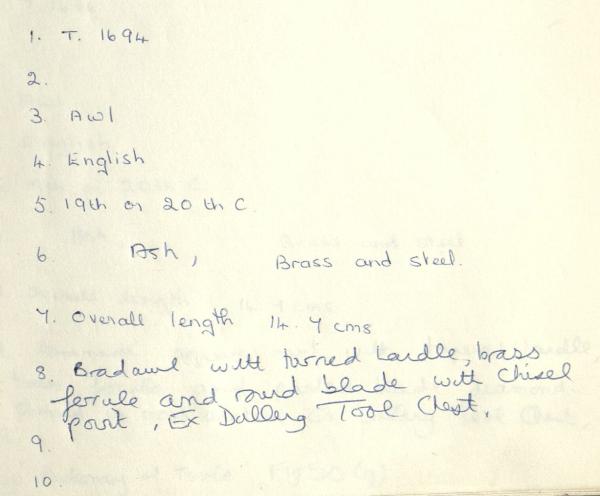 1. T. 1694
2.
3. Awl
4. English
5. 19th or 20th C.
6. Ash, Brass and steel.
7. Overall length 14.7 cms
8. Bradawl with turned handle, brass
ferrule and round blade with Chisel
point, Ex Tool Chest.
9.
10.